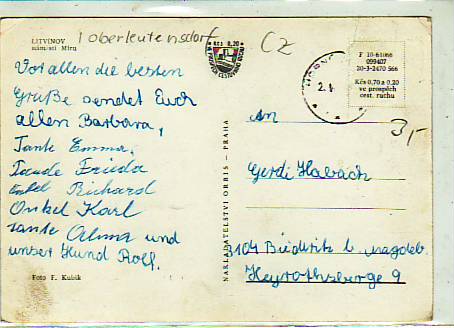 LITVÍNOV
náměstí Míru
Oberleutensdorf
Kčs 0,20
CZ
F 10-61066
099407
20-3-2470 566
Kčs 0,70 a 0,20
ve prospěch
cest. ruchu
2.
3,-
Vor allen die besten
Grüße sendet Euch
allen Barbara,
Tante Emma,
Tande Frieda
Onkel Richard
Onkel Karl
Tante Alma und
unser Hund Rolf.
Foto F. Kubík
NAKLADATELSTVÍ ORBIS - PRAHA
An
Gerdi Habach
3104 Biederitz b. Magdeb.
Heyrothsberge 9